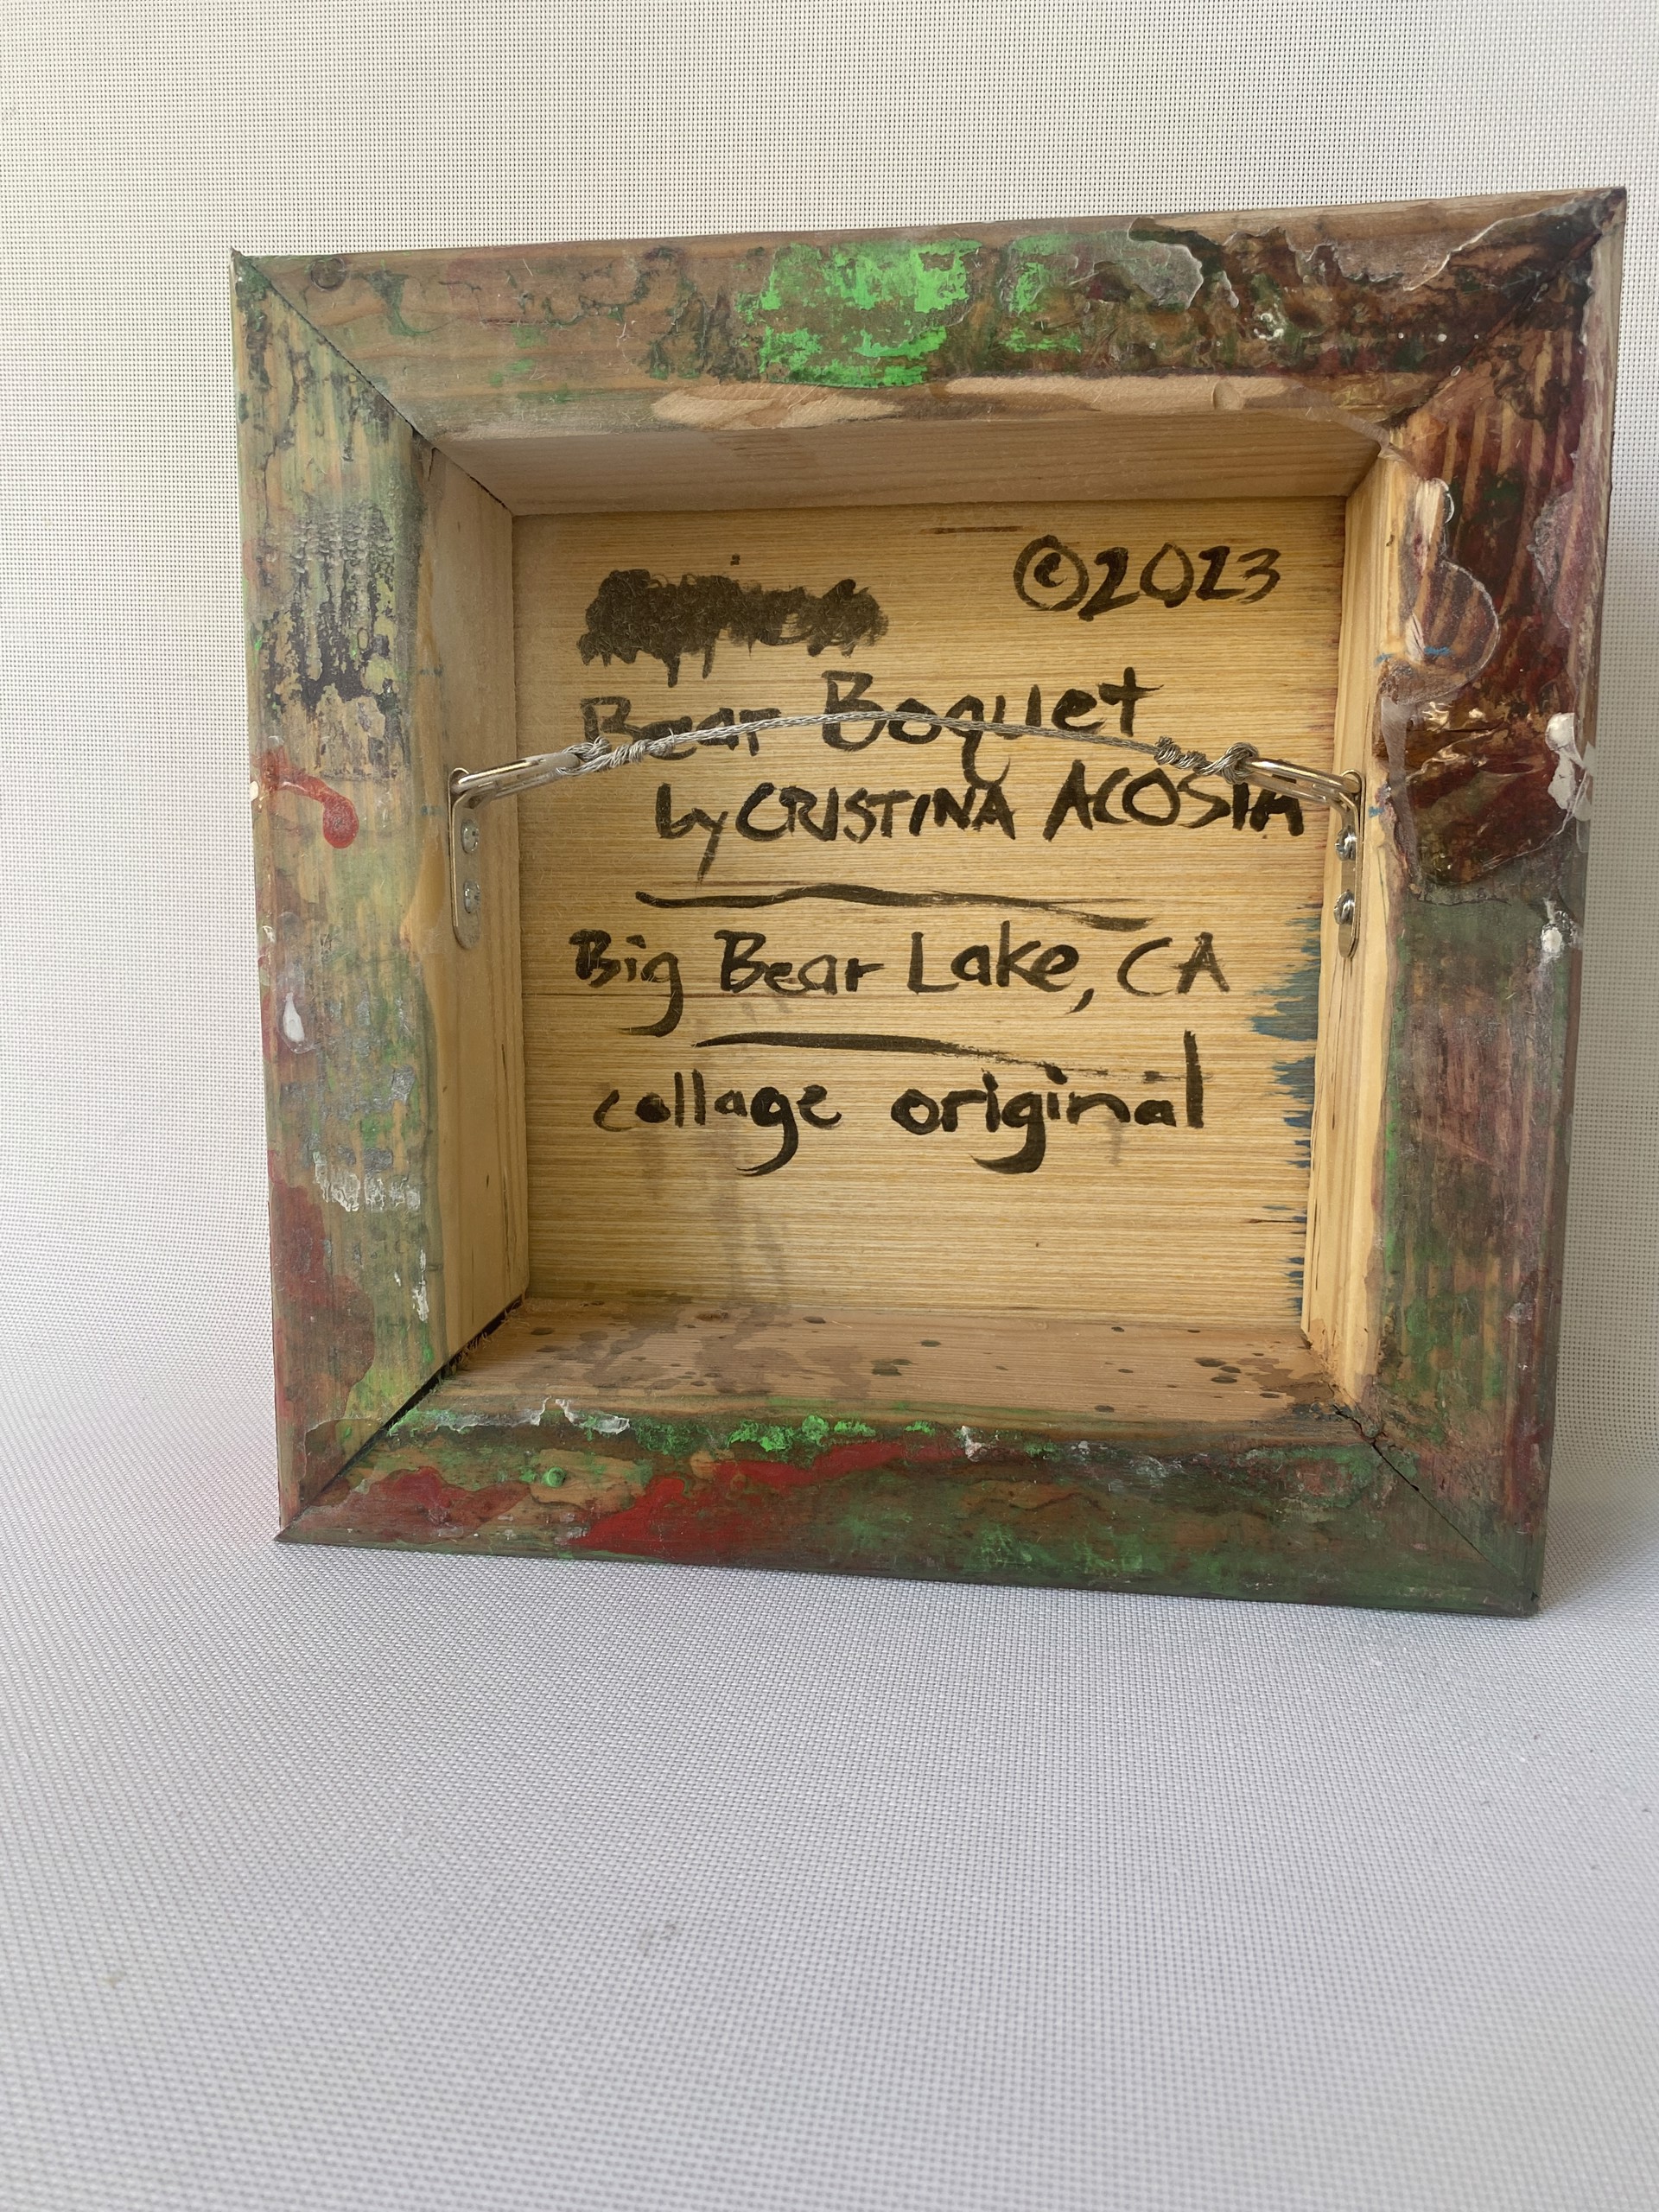 ©2023
Bear Boquet
by CRISTINA ACOSTA
Big Bear Lake, CA
collage original